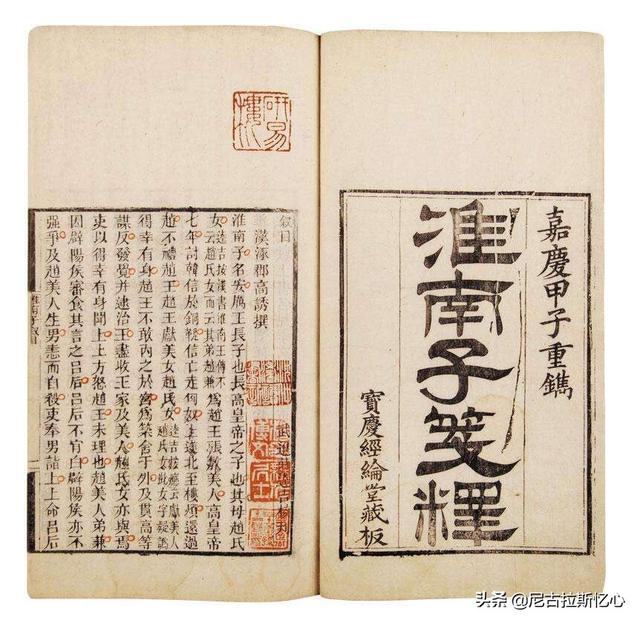 嘉慶甲子重鐫
淮南子箋釋
寶慶經綸堂藏板
研易樓
叙目
漢涿郡高誘撰
武進莊逵吉校刊
淮南子名安厲王長子也長高皇帝之子也其母趙氏
女逵吉按漢書淮南王傳不云趙氏女而云其弟趙兼為趙王張敖美人高皇帝
七年討韓信於銅鞮信亡走匈奴上遂北至樓煩還過
趙不禮趙王趙王獻美女趙氏女
得幸有身趙王不敢內之於宮為築舍于外及貫高等
謀反發覺并逮治王盡收王家及美人趙氏女亦與焉
吏以得幸有身聞上上方怒趙王未理也趙美人弟兼
因辟陽侯審食其言之呂后呂后不肯白辟陽侯亦不
強爭及趙美人生男恚而自殺吏奉男詣上上命呂后
淮南子叙目
头条 @尼古拉斯忆心